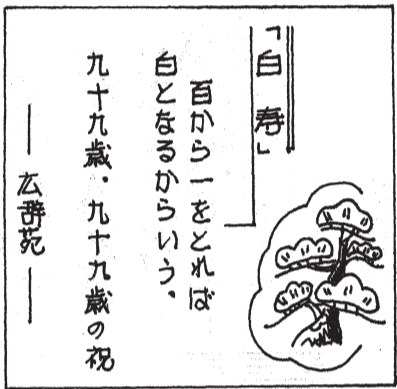 「白寿」
百から一をとれば
白となるからいう。
九十九歳。九十九歳の祝
― 広辞苑 ―